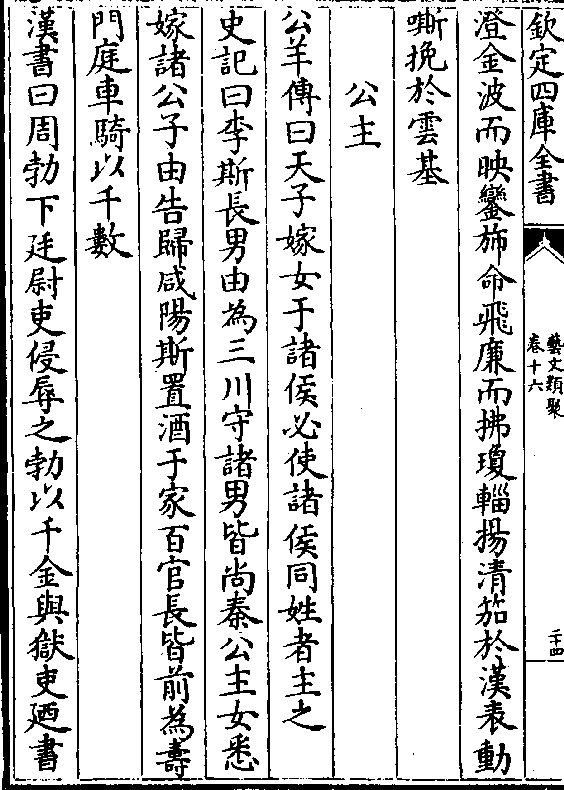 欽定四庫全書
藝文類聚
卷十六
二十四
澄金波而映鑾斾命飛廉而拂瓊輜揚清笳於漢表動
嘶挽於雲基
公主
公羊傳曰天子嫁女于諸侯必使諸侯同姓者主之
史記曰李斯長男由為三川守諸男皆尚秦公主女悉
嫁諸公子由告歸咸陽斯置酒于家百官長皆前為壽
門庭車騎以千數
漢書曰周勃下廷尉吏侵辱之勃以千金與獄吏廼書